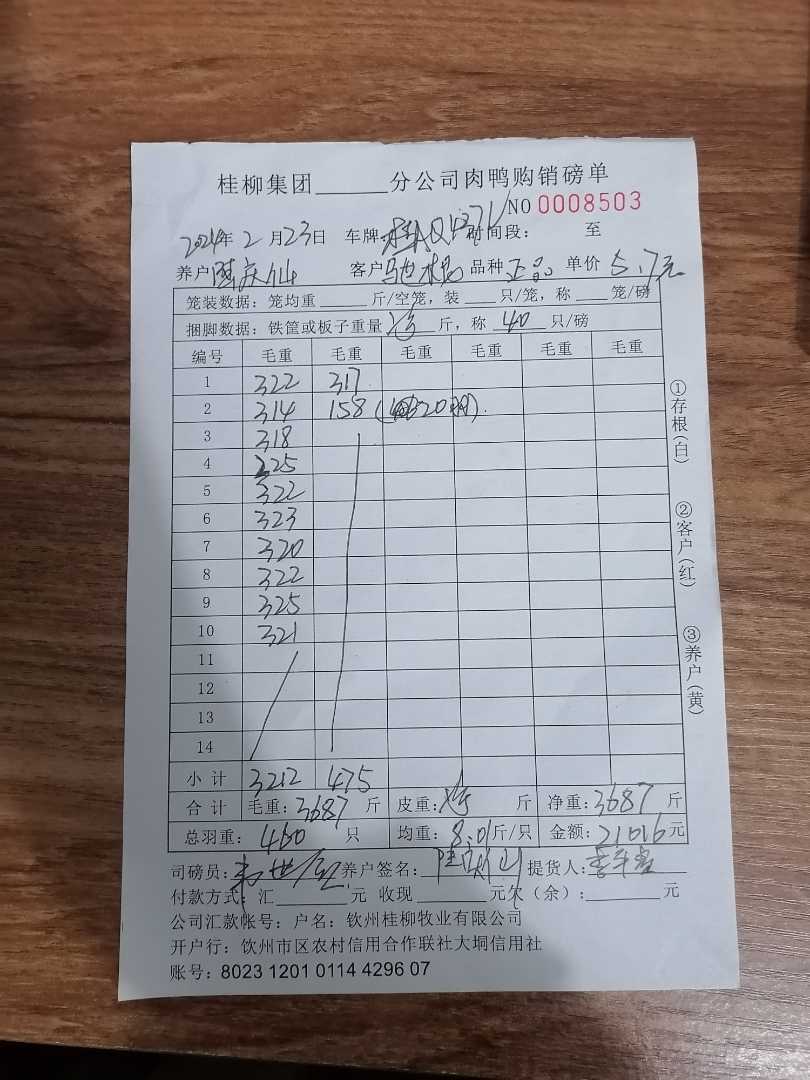 桂柳集团______分公司肉鸭购销磅单
NO 0008503
2024年 2 月 23 日 车牌: 时间段: 至
养户 客户 品种 正品 单价 5.7元
笼装数据: 笼均重 ____ 斤/空笼, 装 ___ 只/笼, 称 ___ 笼/磅
捆脚数据: 铁筐或板子重量 ____ 斤, 称 40 只/磅
编号 毛重 毛重 毛重 毛重 毛重 毛重
1 322 317
2 314 158 (20羽).
3 318
4 325
5 322
6 323
7 320
8 322
9 325
10 321
11
12
13
14
小计 3212 475
合计 毛重: 3687 斤 皮重: 斤 净重: 3687 斤
总羽重: 460 只 均重: 8.01 斤/只 金额: 21016 元
司磅员: 养户签名: 提货人:
付款方式: 汇______元 收现______元欠(余): ______元
公司汇款帐号: 户名: 钦州桂柳牧业有限公司
开户行: 钦州市区农村信用合作联社大垌信用社
账号: 8023 1201 0114 4296 07
①存根(白)
②客户(红)
③养户(黄)